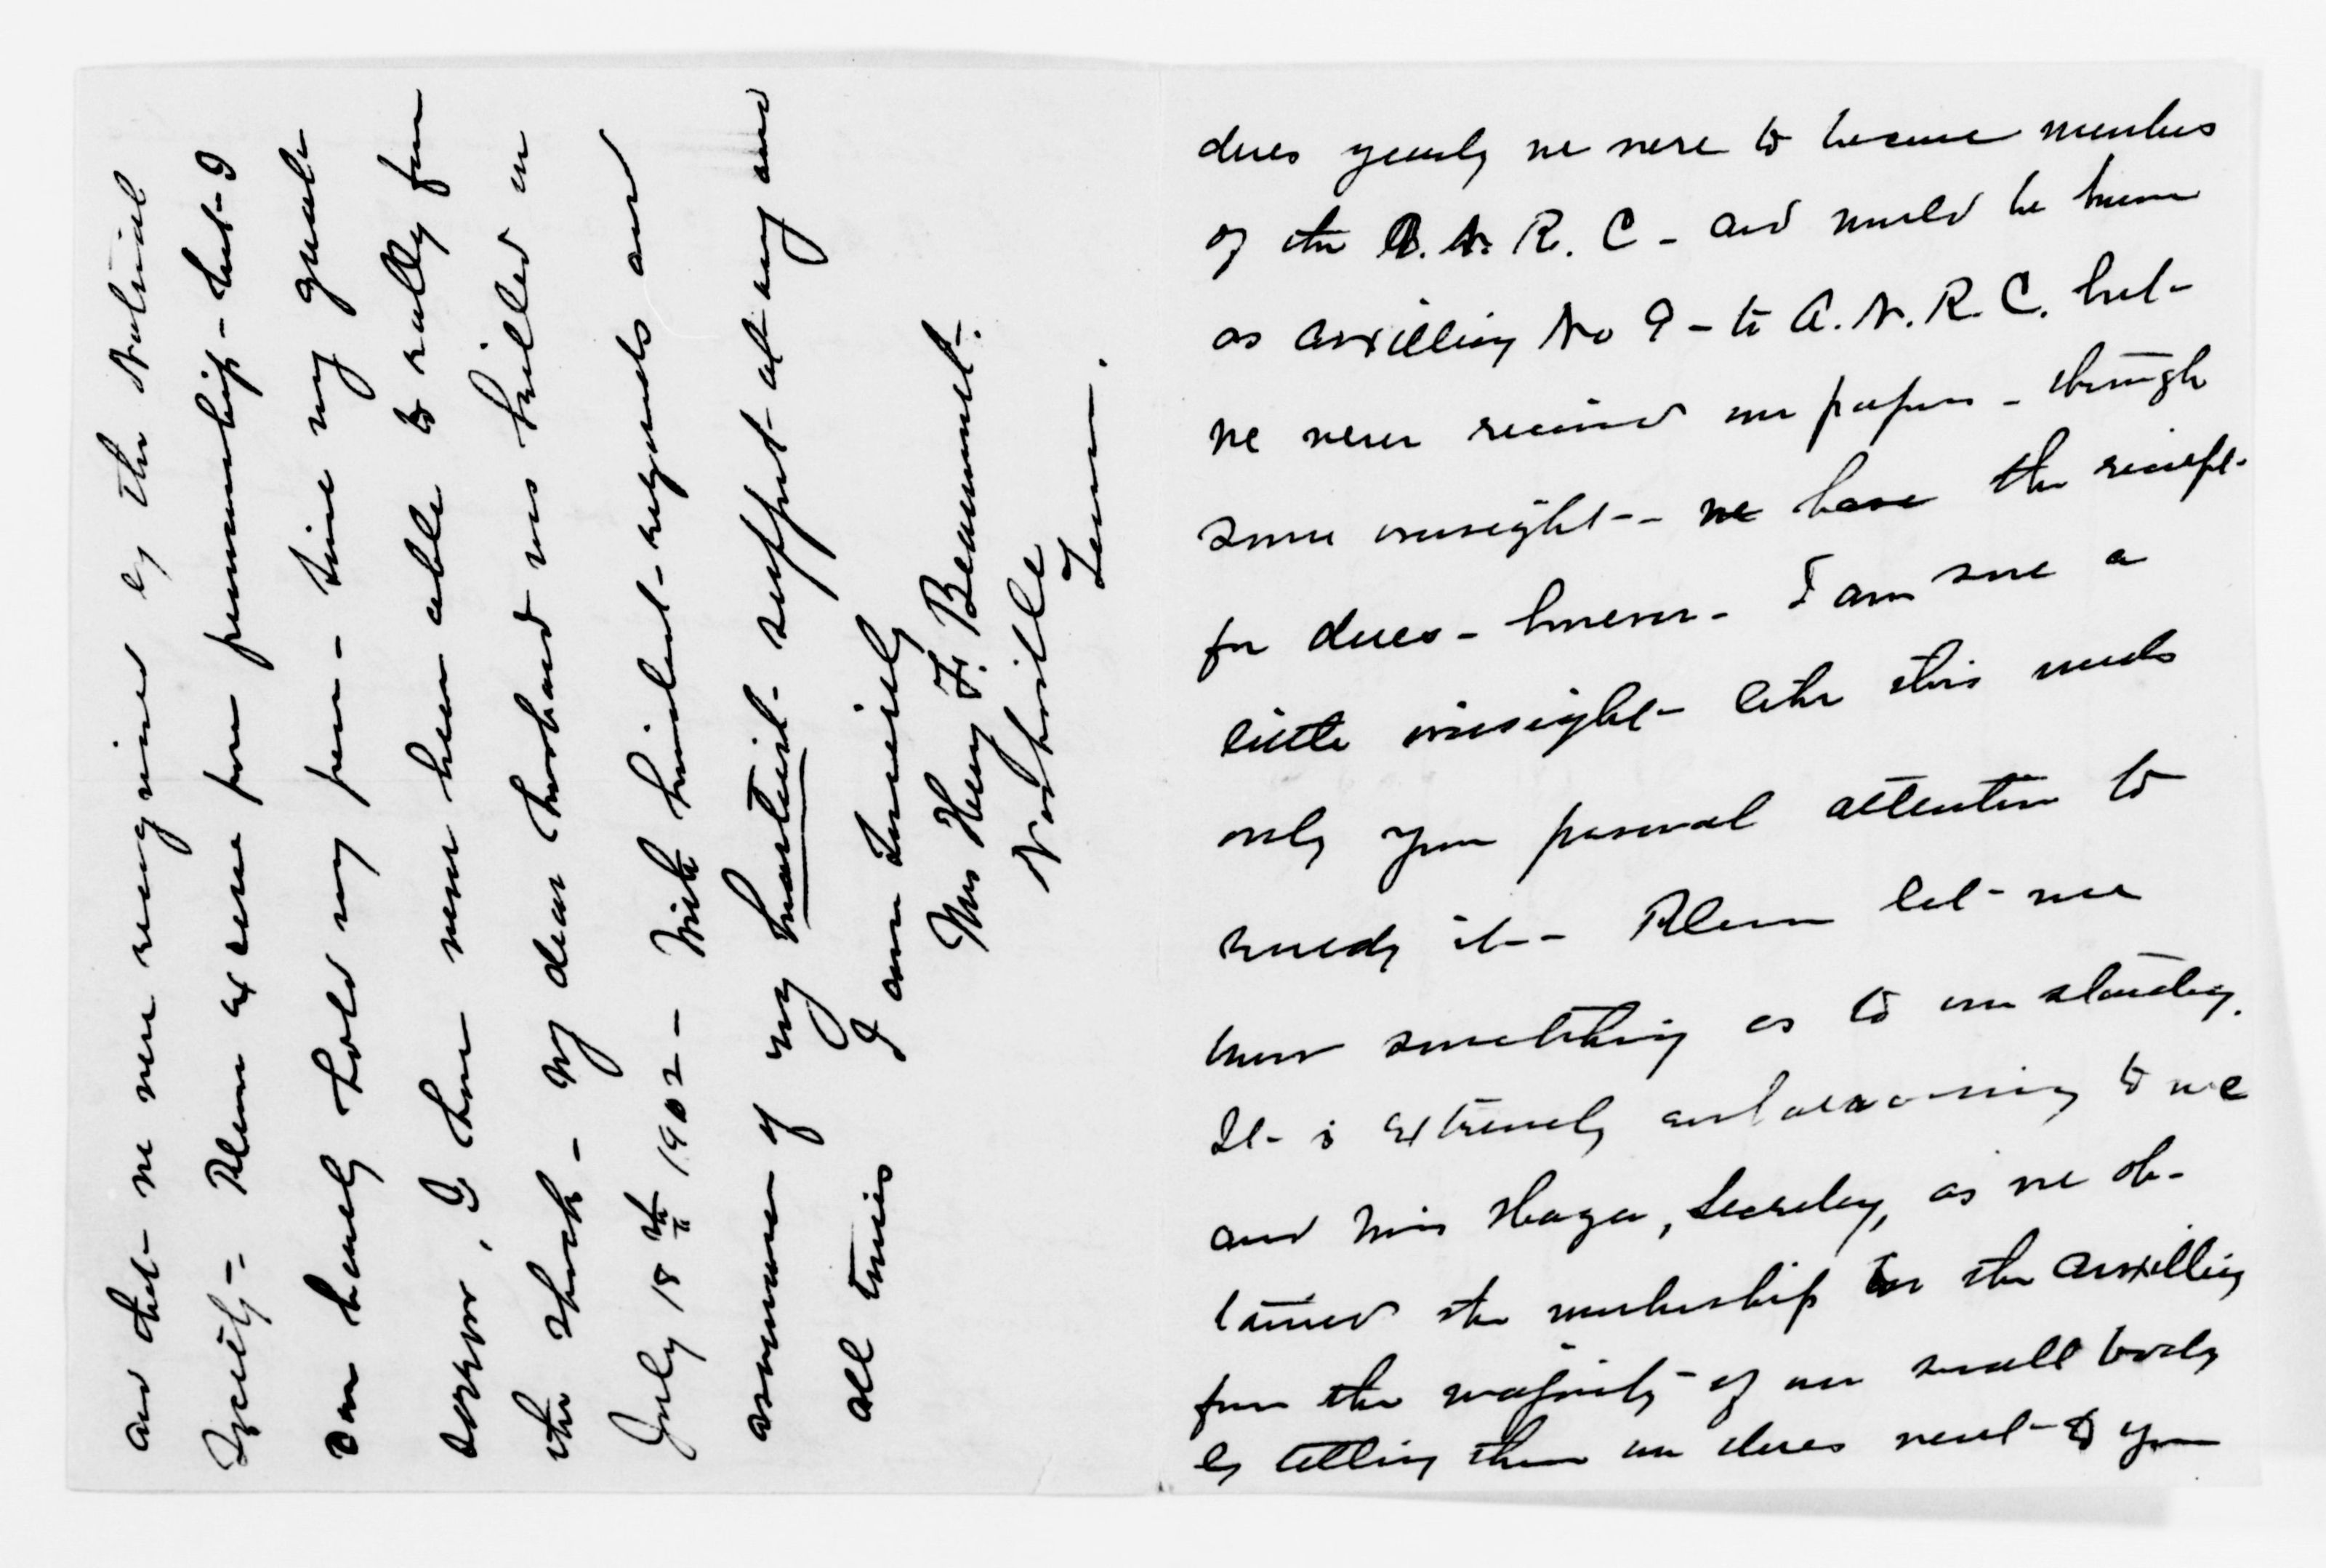 dues yearly we were to become members
of the A. N. R. C - and would be known
as Auxilliary No 9 - to A. N. R. C. but -
we never received our papers - through
some oversight - - we have the receipt -
for dues - however - I am sure a
little oversight - like this needs
only your personal attention to
remedy it - - Please let - me
know something as to our standing.
It - is extremely embarrassing to me
and Miss Hager, Secretary, as we ob-
tained the membership for the Auxilliary
from the majority - of our small body
by telling them our dues went - to you
and that - we were recognized by the National
Society - . Please excuse poor penmanship - but - I
can hardly hold my pen - Since my great
sorrow, I have never been able to rally from
the shock - My dear husband was killed on
July 18th 1902 - With kindest - regards and
assurance of my heartiest - support - at any and
all times
I am Sincerely
Mrs Henry F. Beaumont - .
Nashville
Tenn.